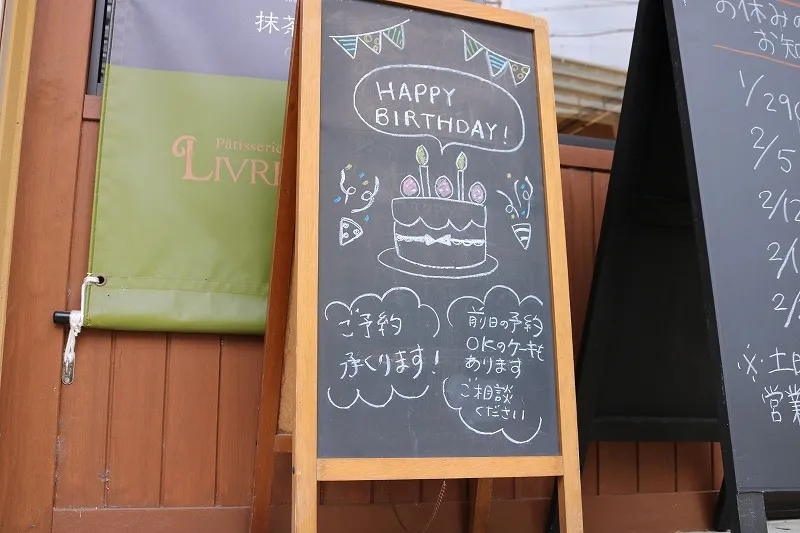 抹茶
Pâtisserie
LIVRE
HAPPY
BIRTHDAY!
ご予約
承くります!
前日の予約
OKのケーキも
あります
ご相談
ください
お休みの
お知
1/29(
2/5
2/12
2/1
2/
※・土日
営業